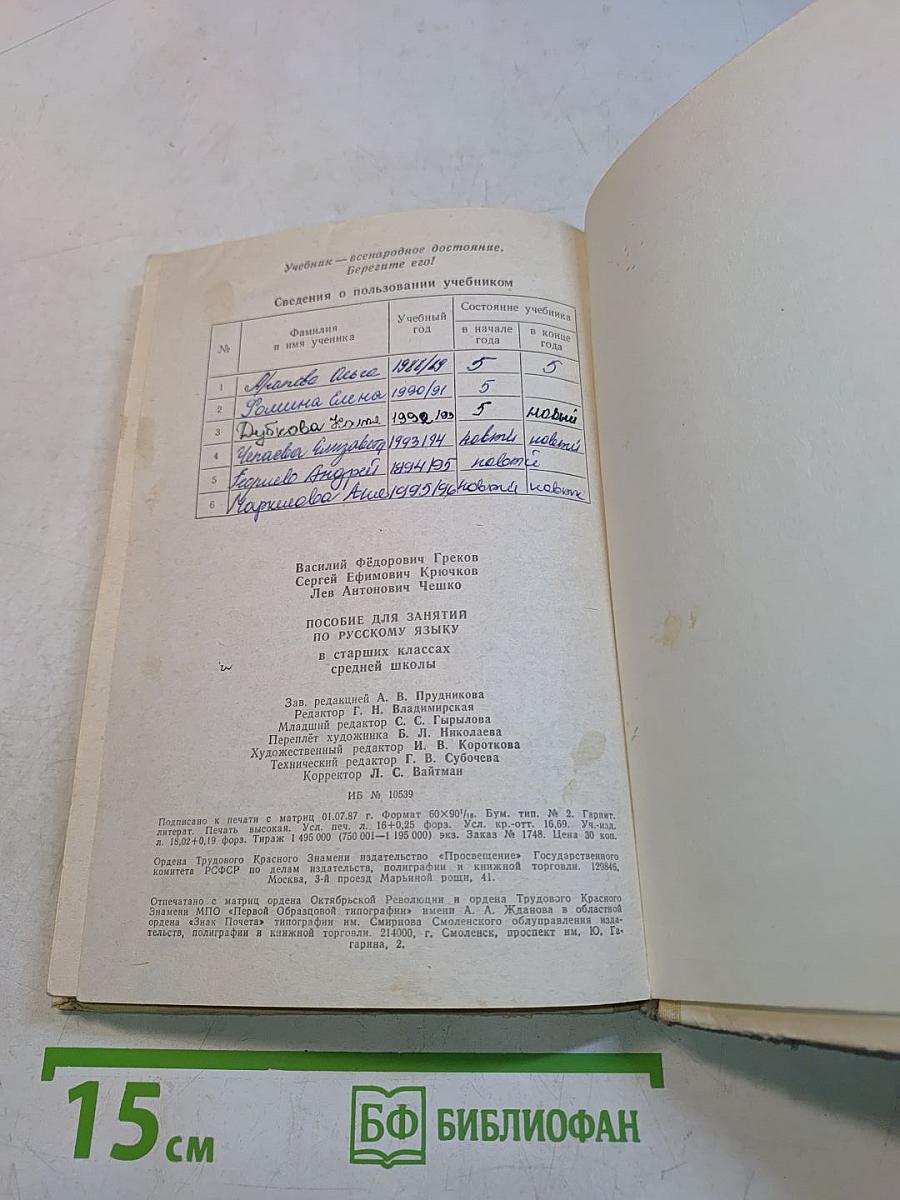 Учебник — всенародное достояние.
Берегите его!
Сведения о пользовании учебником
№ Фамилия и имя ученика Учебный год Состояние учебника
в начале года в конце года
1 Агапова Ольга 1988/89 5 5
2 Фомина Елена 1990/91 5
3 Дубкова Катя 1992/93 5 новый
4 Чепаева Елизавета 1993/94 новый новый
5 Андрей 1994/95 новый
6 1995/96 новый новый
Василий Фёдорович Греков
Сергей Ефимович Крючков
Лев Антонович Чешко
ПОСОБИЕ ДЛЯ ЗАНЯТИЙ
ПО РУССКОМУ ЯЗЫКУ
в старших классах
средней школы
Зав. редакцией А. В. Прудникова
Редактор Г. Н. Владимирская
Младший редактор С. С. Гырылова
Переплёт художника Б. Л. Николаева
Художественный редактор И. В. Короткова
Технический редактор Г. В. Субочева
Корректор Л. С. Вайтман
ИБ № 10539
Подписано к печати с матриц 01.07.87 г. Формат 60×90¹/₁₆. Бум. тип. № 2. Гарнит.
литерат. Печать высокая. Усл. печ. л. 16+0,25 форз. Усл. кр.-отт. 16,69. Уч.-изд.
л. 18,02+0,19 форз. Тираж 1 495 000 (750 001—1 195 000) экз. Заказ № 1748. Цена 30 коп.
Ордена Трудового Красного Знамени издательство «Просвещение» Государственного
комитета РСФСР по делам издательств, полиграфии и книжной торговли. 129846,
Москва, 3-й проезд Марьиной рощи, 41.
Отпечатано с матриц ордена Октябрьской Революции и ордена Трудового Красного
Знамени МПО «Первой Образцовой типографии» имени А. А. Жданова в областной
ордена «Знак Почета» типографии им. Смирнова Смоленского облуправления изда-
тельств, полиграфии и книжной торговли. 214000, г. Смоленск, проспект им. Ю. Га-
гарина, 2.
15 см
БФ БИБЛИОФАН